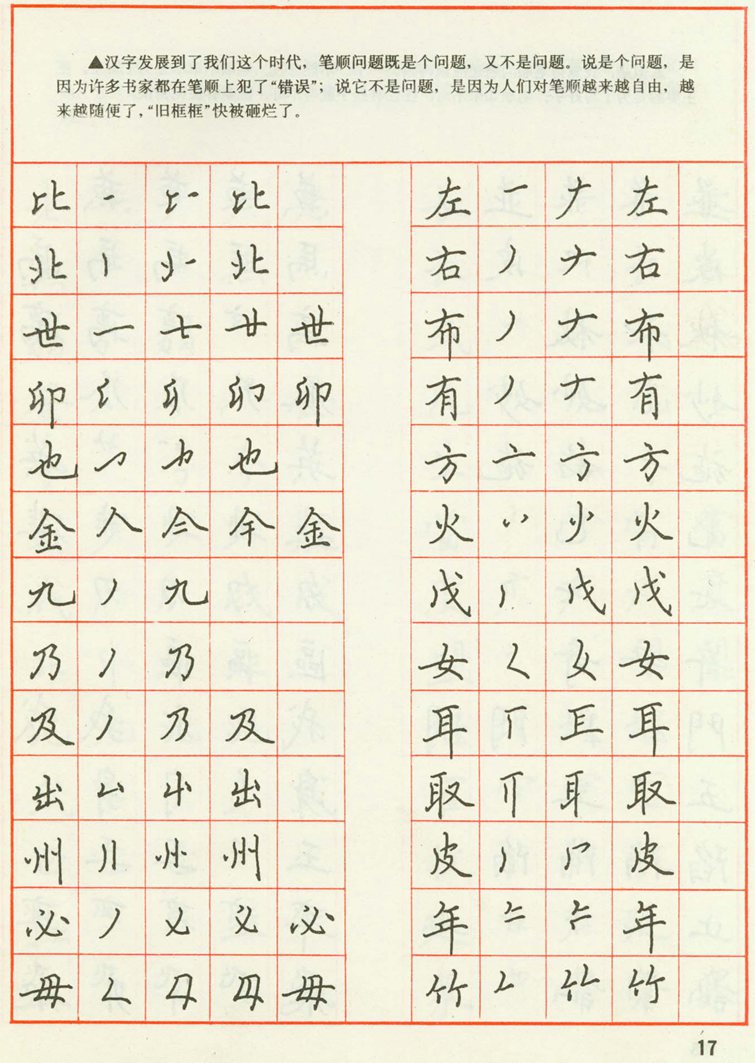 ▲汉字发展到了我们这个时代，笔顺问题既是个问题，又不是问题。说是个问题，是
因为许多书家都在笔顺上犯了“错误”；说它不是问题，是因为人们对笔顺越来越自由，越
来越随便了，“旧框框”快被砸烂了。
比 比 左 一 𠂇 左
北 北 右 丿 𠂇 右
世 一 世 布 丿 𠂇 布
卯 卯 有 丿 𠂇 有
也 也 方 亠 方 方
金 人 亼 金 火 火
九 丿 九 戊 戊 戊
乃 丿 乃 女 女
及 丿 乃 及 耳 耳
出 出 取 耳 取
州 州 皮 皮
必 丿 必 年 年
毋 毋 竹 竹
17